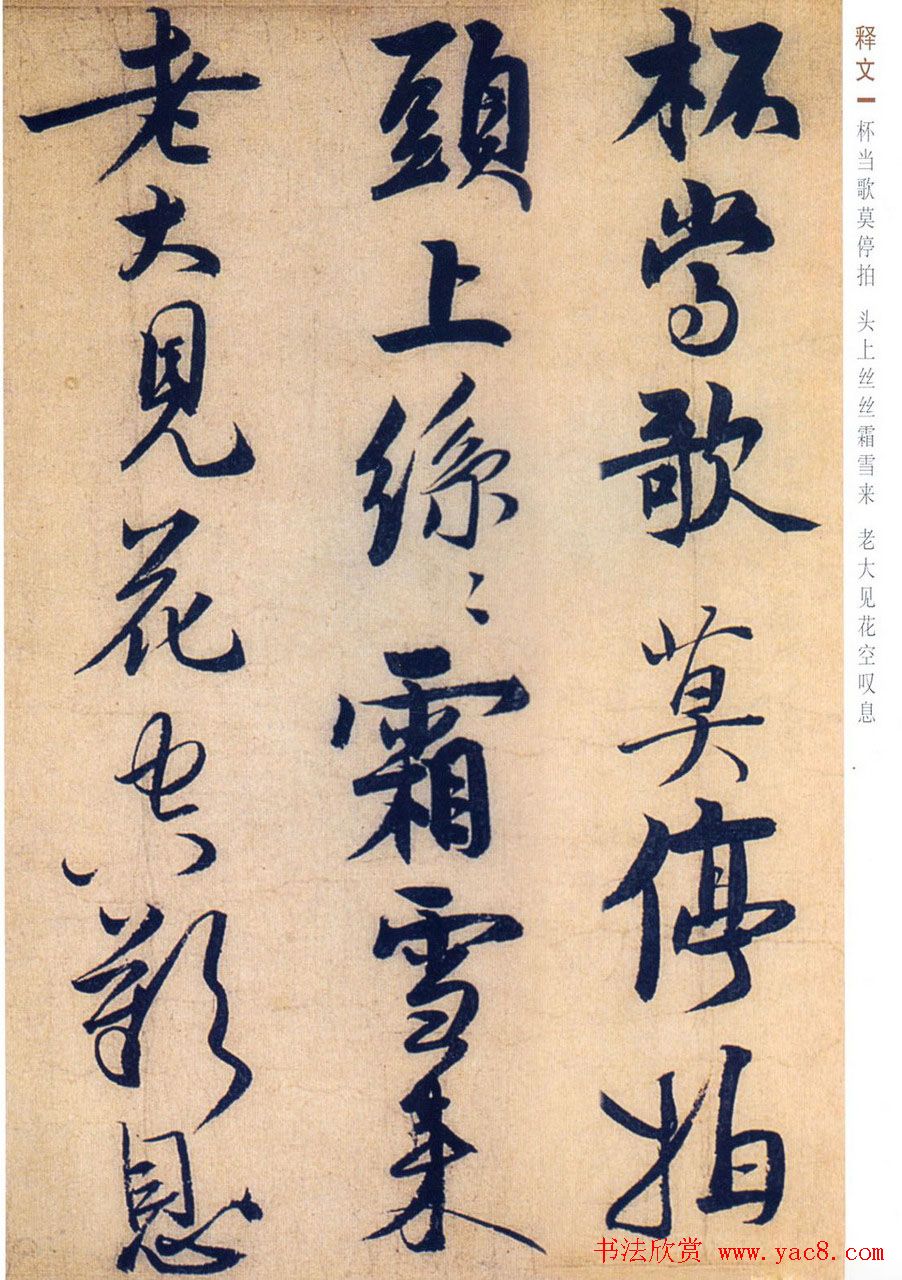 释文
杯当歌莫停拍 头上丝丝霜雪来 老大见花空叹息
杯當歌莫停拍
頭上絲〻霜雪来
老大見花空歎息
书法欣赏 www.yac8.com